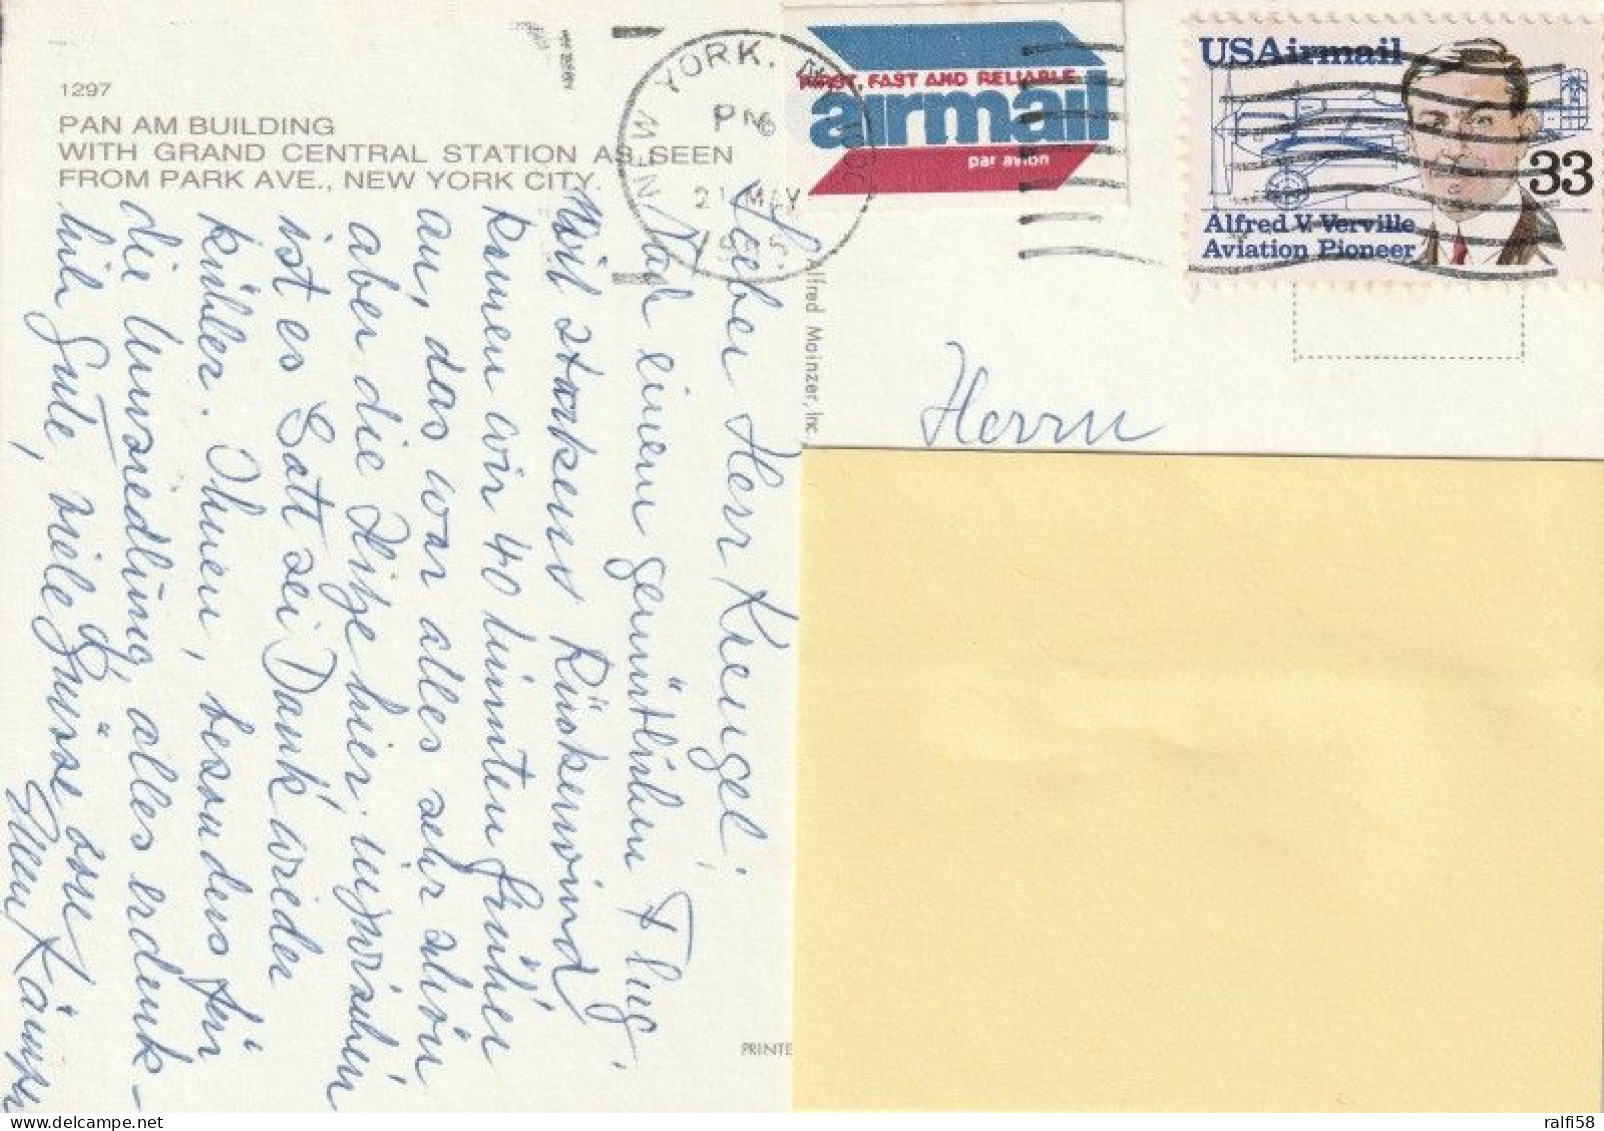 1297
PAN AM BUILDING
WITH GRAND CENTRAL STATION AS SEEN
FROM PARK AVE., NEW YORK CITY.
NEW YORK, N.Y. 100
PM
21 MAY
1985
FIRST, FAST AND RELIABLE
airmail
par avion
USAirmail
33
Alfred V. Verville
Aviation Pioneer
Alfred Mainzer, Inc.
Herrn
Lieber Herr Kreugel,
Nach einem gemütlichen Flug,
mit starkem Rückenwind
kamen wir 40 Minuten früher
an, das war alles sehr schön,
aber die Hitze hier, inzwischen
ist es Gott sei Dank wieder
kühler. Ihnen, besonders für
die Umsiedlung, alles erdenk-
lich Gute, viele Grüsse von
Ellen
PRINTE
ralfi58